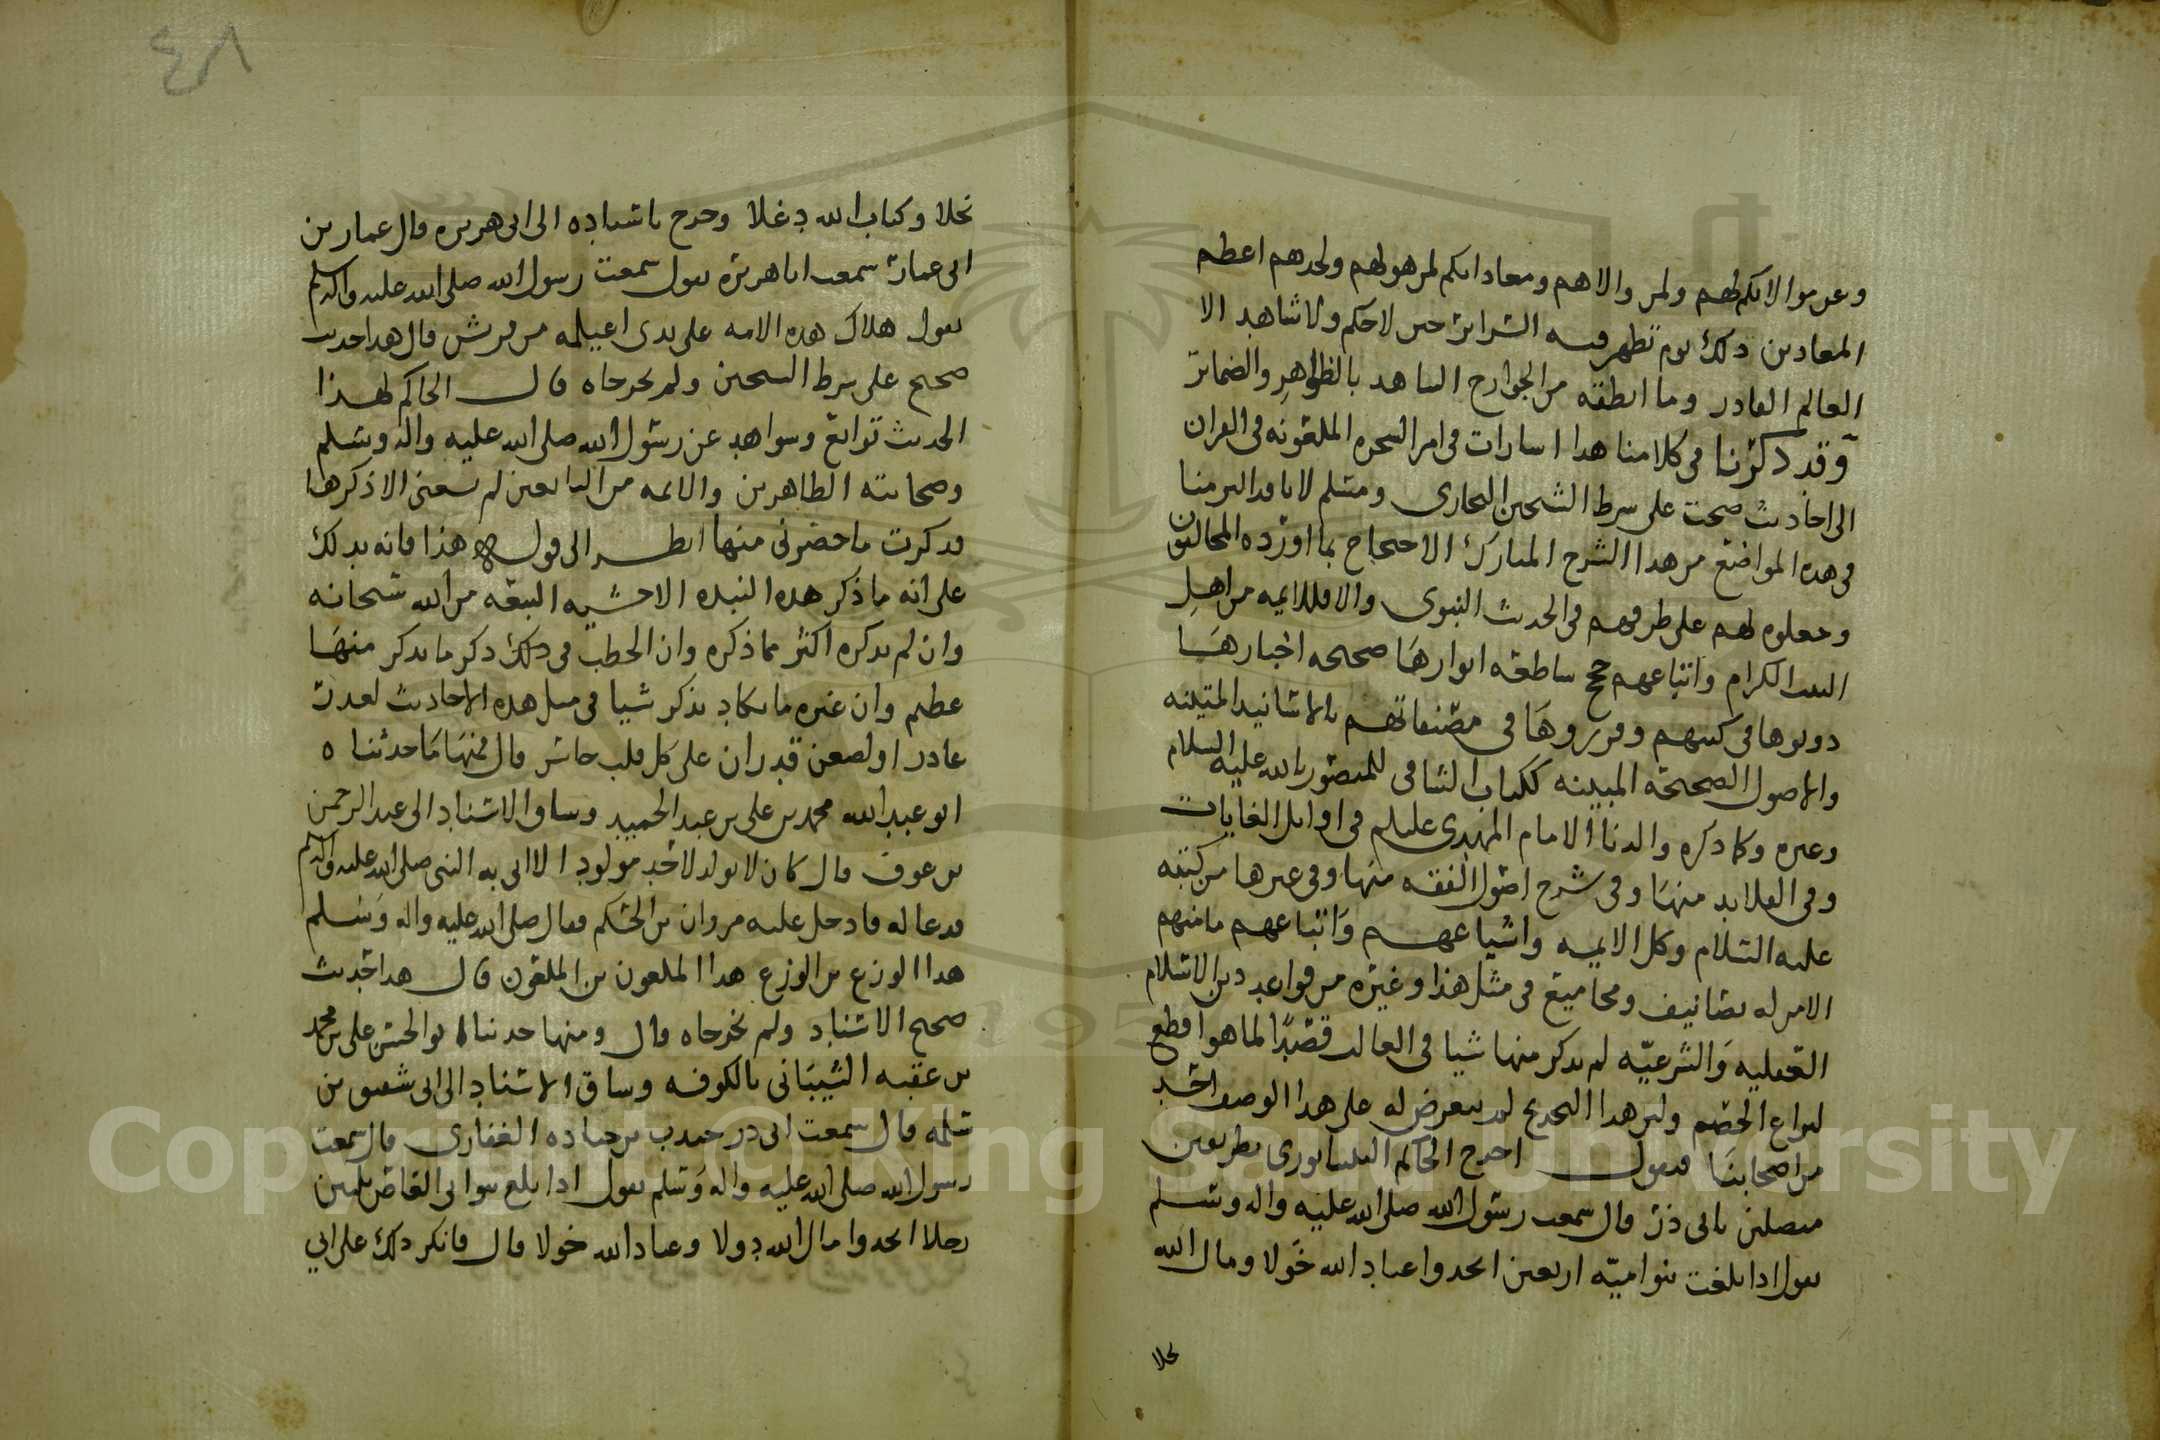 وعن موالاتكم لهم ولمن والاهم ومعاداتكم لمن هو لهم ولجدهم اعظم
المعادين ذلك يوم تظهر فيه السرائر حين لا حكم ولا شاهد الا
العالم القادر وما انطقه من الجوارح الشاهد بالظواهر والضمائر
وقد ذكرنا في كلامنا هذا اشارات في امر الشجره الملعونه في القران
الى احاديث صحت على شرط الشيخين البخارى ومسلم لانا قد التزمنا
في هذه المواضع من هذا الشرح المبارك الاحتجاج بما اورده المخالفون
وجعلوه لهم على طرقهم في الحديث النبوى والا فللايمه من اهل
البيت الكرام واتباعهم حجج ساطعه انوارها صحيحه اخبارها
دونوها في كتبهم وقرروها في مصنفاتهم بالاسانيد المتينه
والاصول الصحيحه المبينه ككتاب الشافي للمنصور بالله عليه السلام
وغيره وكما ذكره والدنا الامام المهدي عليلم في اوايل الغايات
وفي القلايد منها وفي شرح اصول الفقه منها وفي غيرها من كتبه
عليه السلام وكل الايمه واشياعهم واتباعهم ما منهم
الا من له تصانيف ومجاميع في مثل هذا وغيره من قواعد دين الاسلام
العقليه والشرعيه لم يذكر منها شيا في الغالب قصدًا لما هو اقطع
لنزاع الخصم ولان هذا التخريج لم يتعرض له على هذا الوصف احد
من اصحابنا فنقول اخرج الحاكم النيسابورى بطريقين
متصلين بابى ذر قال سمعت رسول الله صلى الله عليه واله وسلم
يقول اذا بلغت بنو اميه اربعين اتخذوا عباد الله خولا ومال الله
نحلا
٤٨
نحلا وكتاب الله دغلا وخرج باسناده الى ابى هريره قال عمار بن
ابى عمار سمعت ابا هريره يقول سمعت رسول الله صلى الله عليه واله وسلم
يقول هلاك هذه الامه على يدى اغيلمه من قريش قال هذا حديث
صحيح على شرط الشيخين ولم يخرجاه قال الحاكم لهذا
الحديث توابع وشواهد عن رسول الله صلى الله عليه واله وسلم
وصحابته الطاهرين والايمه من التابعين لم يسعنى الا ذكرها
فذكرت ما حضرنى منها انظر الى قوله هذا فانه يدلك
على انه ما ذكر هذه النبذه الا خشيه التبعه من الله سبحانه
وان لم يذكره اكثر مما ذكره وان الخطب في ذلك ذكر ما يذكر منها
عظيم وان غيره ما يكاد يذكر شيا في مثل هذه الاحاديث لعذر
غادر او لضعن قد ران على كل قلب خاسر قال فمنها ما حدثنا ٥
ابو عبد الله محمد بن على بن عبد الحميد وساق الاسناد الى عبد الرحمن
بن عوف قال كان لا يولد لاحد مولود الا اتى به النبى صلى الله عليه واله وسلم
فدعا له فادخل عليه مروان بن الحكم فقال صلى الله عليه واله وسلم
هذا الوزع بن الوزع هذا الملعون بن الملعون قال هذا حديث
صحيح الاسناد ولم يخرجاه قال ومنها حدثناه ابو الحسن على بن محمد
بن عقبه الشيبانى بالكوفه وساق الاسناد الى ابى شقيق بن
سلمه قال سمعت ابى ذر جندب بن جناده الغفارى قال سمعت
رسول الله صلى الله عليه واله وسلم يقول اذا بلغ بنو ابى العاص ثلثين
رجلا اتخذوا مال الله دولا وعباد الله خولا قال فانكر ذلك على ابي